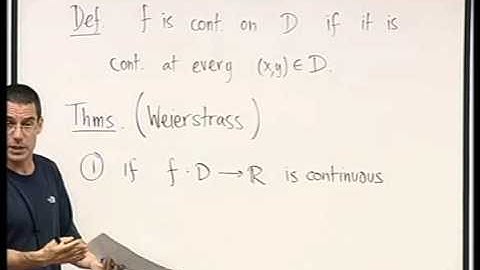 Def f is cont. on D if it is
cont. at every (x,y) ∈ D.
Thms. (Weierstrass)
① If f: D → ℝ is continuous